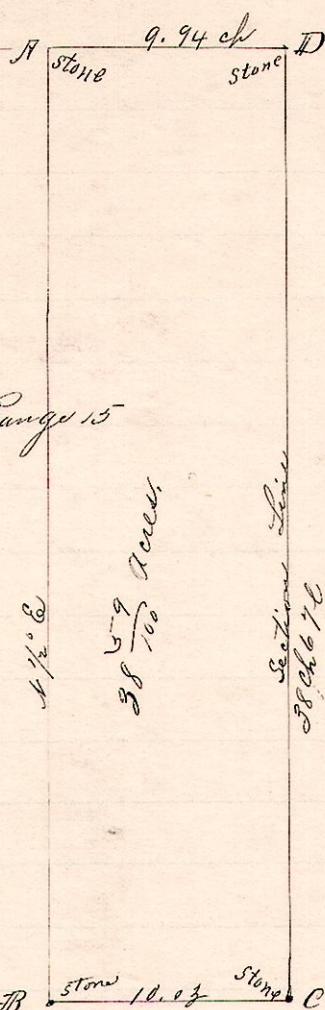 A 9.94 ch D
stone stone
Range 15
N 1/2° E
38 59/100 Acres.
Section Line
38 Ch 67 l
stone stone
B 10.03 C